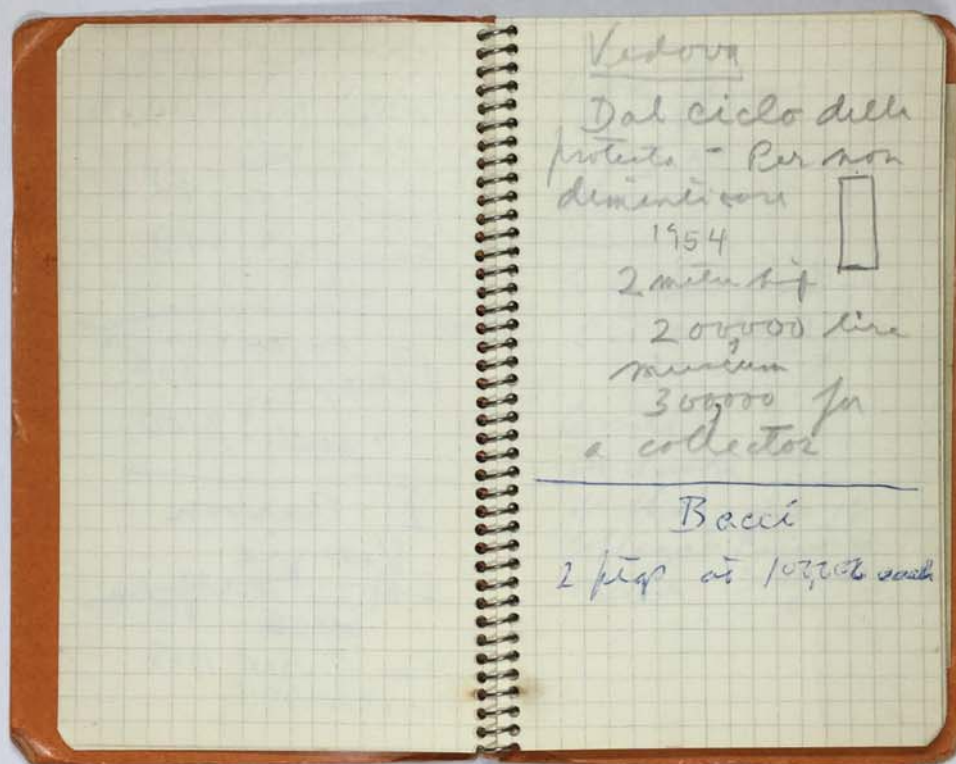 Vedova
Dal ciclo della
protesta - Per non
dimenticare
1954
2 meter high
200,000 lire
museum
300,000 for
a collector
Bacci
2 ptgs at 100,000 each